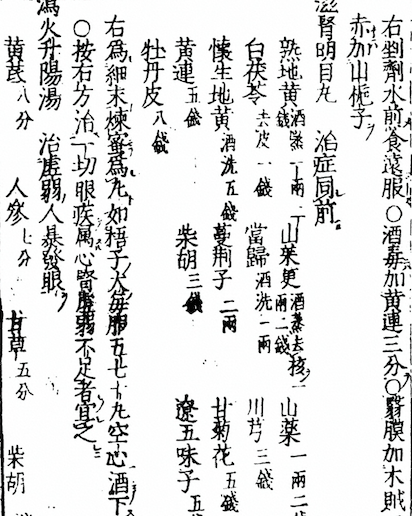 右剉劑水煎食遠服〇酒毒加黃連三分〇翳膜加木賊
赤加山梔子
滋腎明目丸 治症同前
熟地黃酒蒸一兩一錢 山茱萸酒蒸去核一兩二錢 山藥一兩二
白茯苓去皮一錢 當歸酒洗一兩 川芎三錢
懷生地黃酒洗五錢 蔓荆子二兩 甘菊花五錢
黃連五錢 柴胡三錢 遼五味子五
牡丹皮八錢
右為細末煉蜜為丸如梧子大每服五七十丸空心酒下
〇按右方治一切眼疾屬心腎虛弱不足者宜之
瀉火升陽湯 治虛弱人暴發眼
黃芪八分 人參七分 甘草五分 柴胡